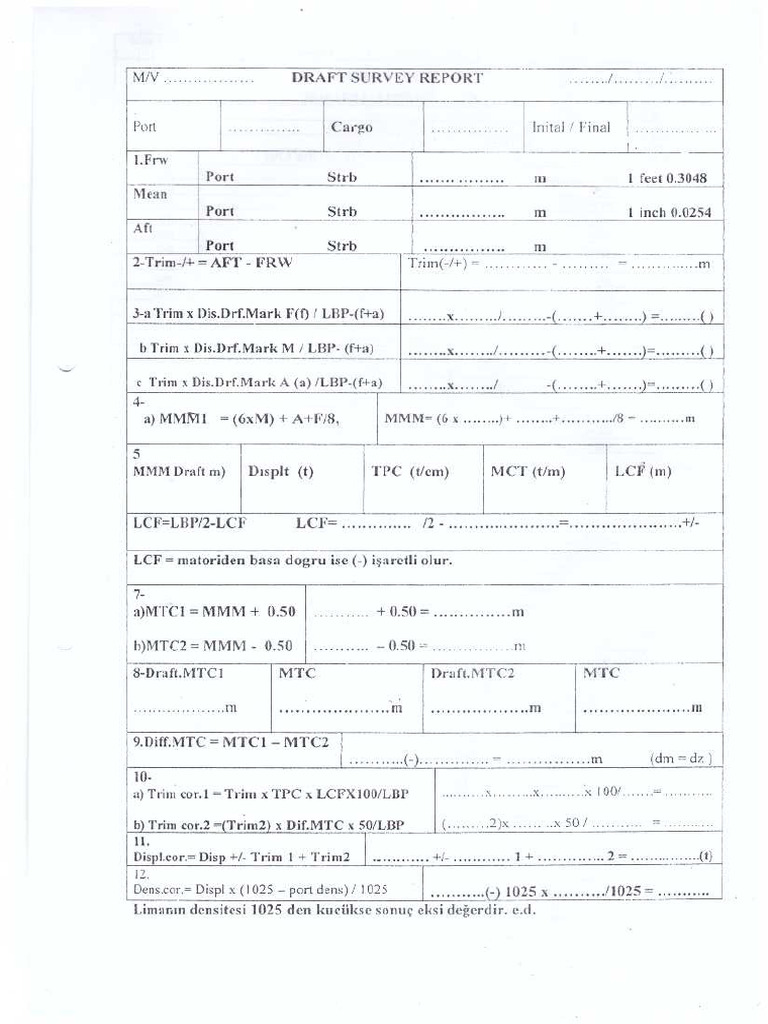 M/V .................. DRAFT SURVEY REPORT ......../........./..........
Port .............. Cargo ................ Initial / Final ..................
1.Frw
Port Strb ................. m 1 feet 0.3048
Mean
Port Strb ................. m 1 inch 0.0254
Aft
Port Strb ................ m
2-Trim-/+ = AFT - FRW Trim(-/+) = ............ - ......... = ..............m
3-a Trim x Dis.Drf.Mark F(f) / LBP-(f+a) ........x......../.........-(.......+.......) =.........( )
b Trim x Dis.Drf.Mark M / LBP- (f+a) ........x......../.........-(.......+.......)=.........( )
c Trim x Dis.Drf.Mark A (a) /LBP-(f+a) ........x......./ -(.......+.......)=.........( )
4-
a) MMM1 = (6xM) + A+F/8, MMM= (6 x .......)+ ........+.........../8 = ..........m
5
MMM Draft m) Displt (t) TPC (t/cm) MCT (t/m) LCF (m)
LCF=LBP/2-LCF LCF= ............. /2 - .....................=.....................+/-
LCF = matoriden basa dogru ise (-) işaretli olur.
7-
a)MTC1 = MMM + 0.50 ........... + 0.50 = ...............m
b)MTC2 = MMM - 0.50 ........... – 0.50 = ................m
8-Draft.MTC1 MTC Draft.MTC2 MTC
..................m .....................m ...................m .....................m
9.Diff.MTC = MTC1 – MTC2
...........(-).............. = .................m (dm = dz )
10-
a) Trim cor.1 = Trim x TPC x LCFX100/LBP .........x.........x..........x 100/......= ..........
b) Trim cor.2 =(Trim2) x Dif.MTC x 50/LBP (.........2)x ........x 50 / ........... = ..........
11.
Displ.cor.= Disp +/- Trim 1 + Trim2 ............ +/- ............ 1 + .............. 2 = ..............(t)
12.
Dens.cor.= Displ x (1025 – port dens) / 1025 ...........(-) 1025 x ........../1025 = ..........
Limanın densitesi 1025 den kucükse sonuç eksi değerdir. e.d.